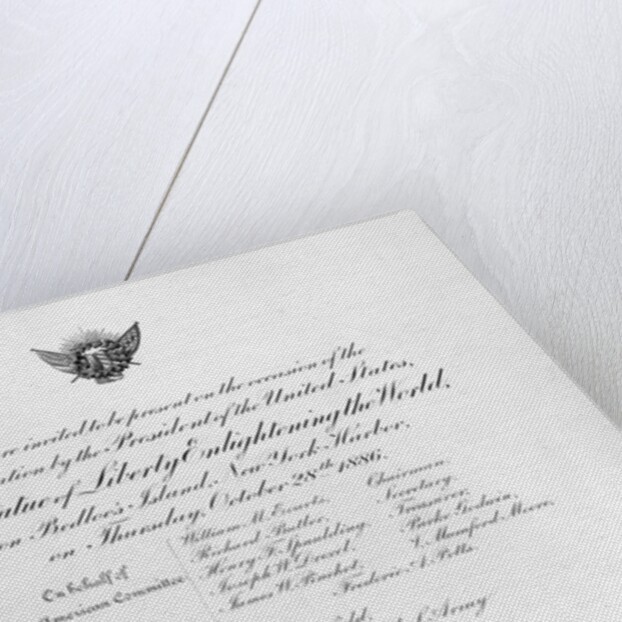 re invited to be present on the occasion of the
ation by the President of the United States,
atue of Liberty Enlightening the World,
on Bedloe's Island, New York Harbor,
on Thursday, October 28th 1886.
On behalf of
American Committee
William M. Evarts, Chairman.
Richard Butler, Secretary.
Henry F. Spaulding, Treasurer.
Joseph W. Drexel, Parke Godwin,
James W. Pinchot, V. Mumford Moore,
Frederic A. Potts.
Army